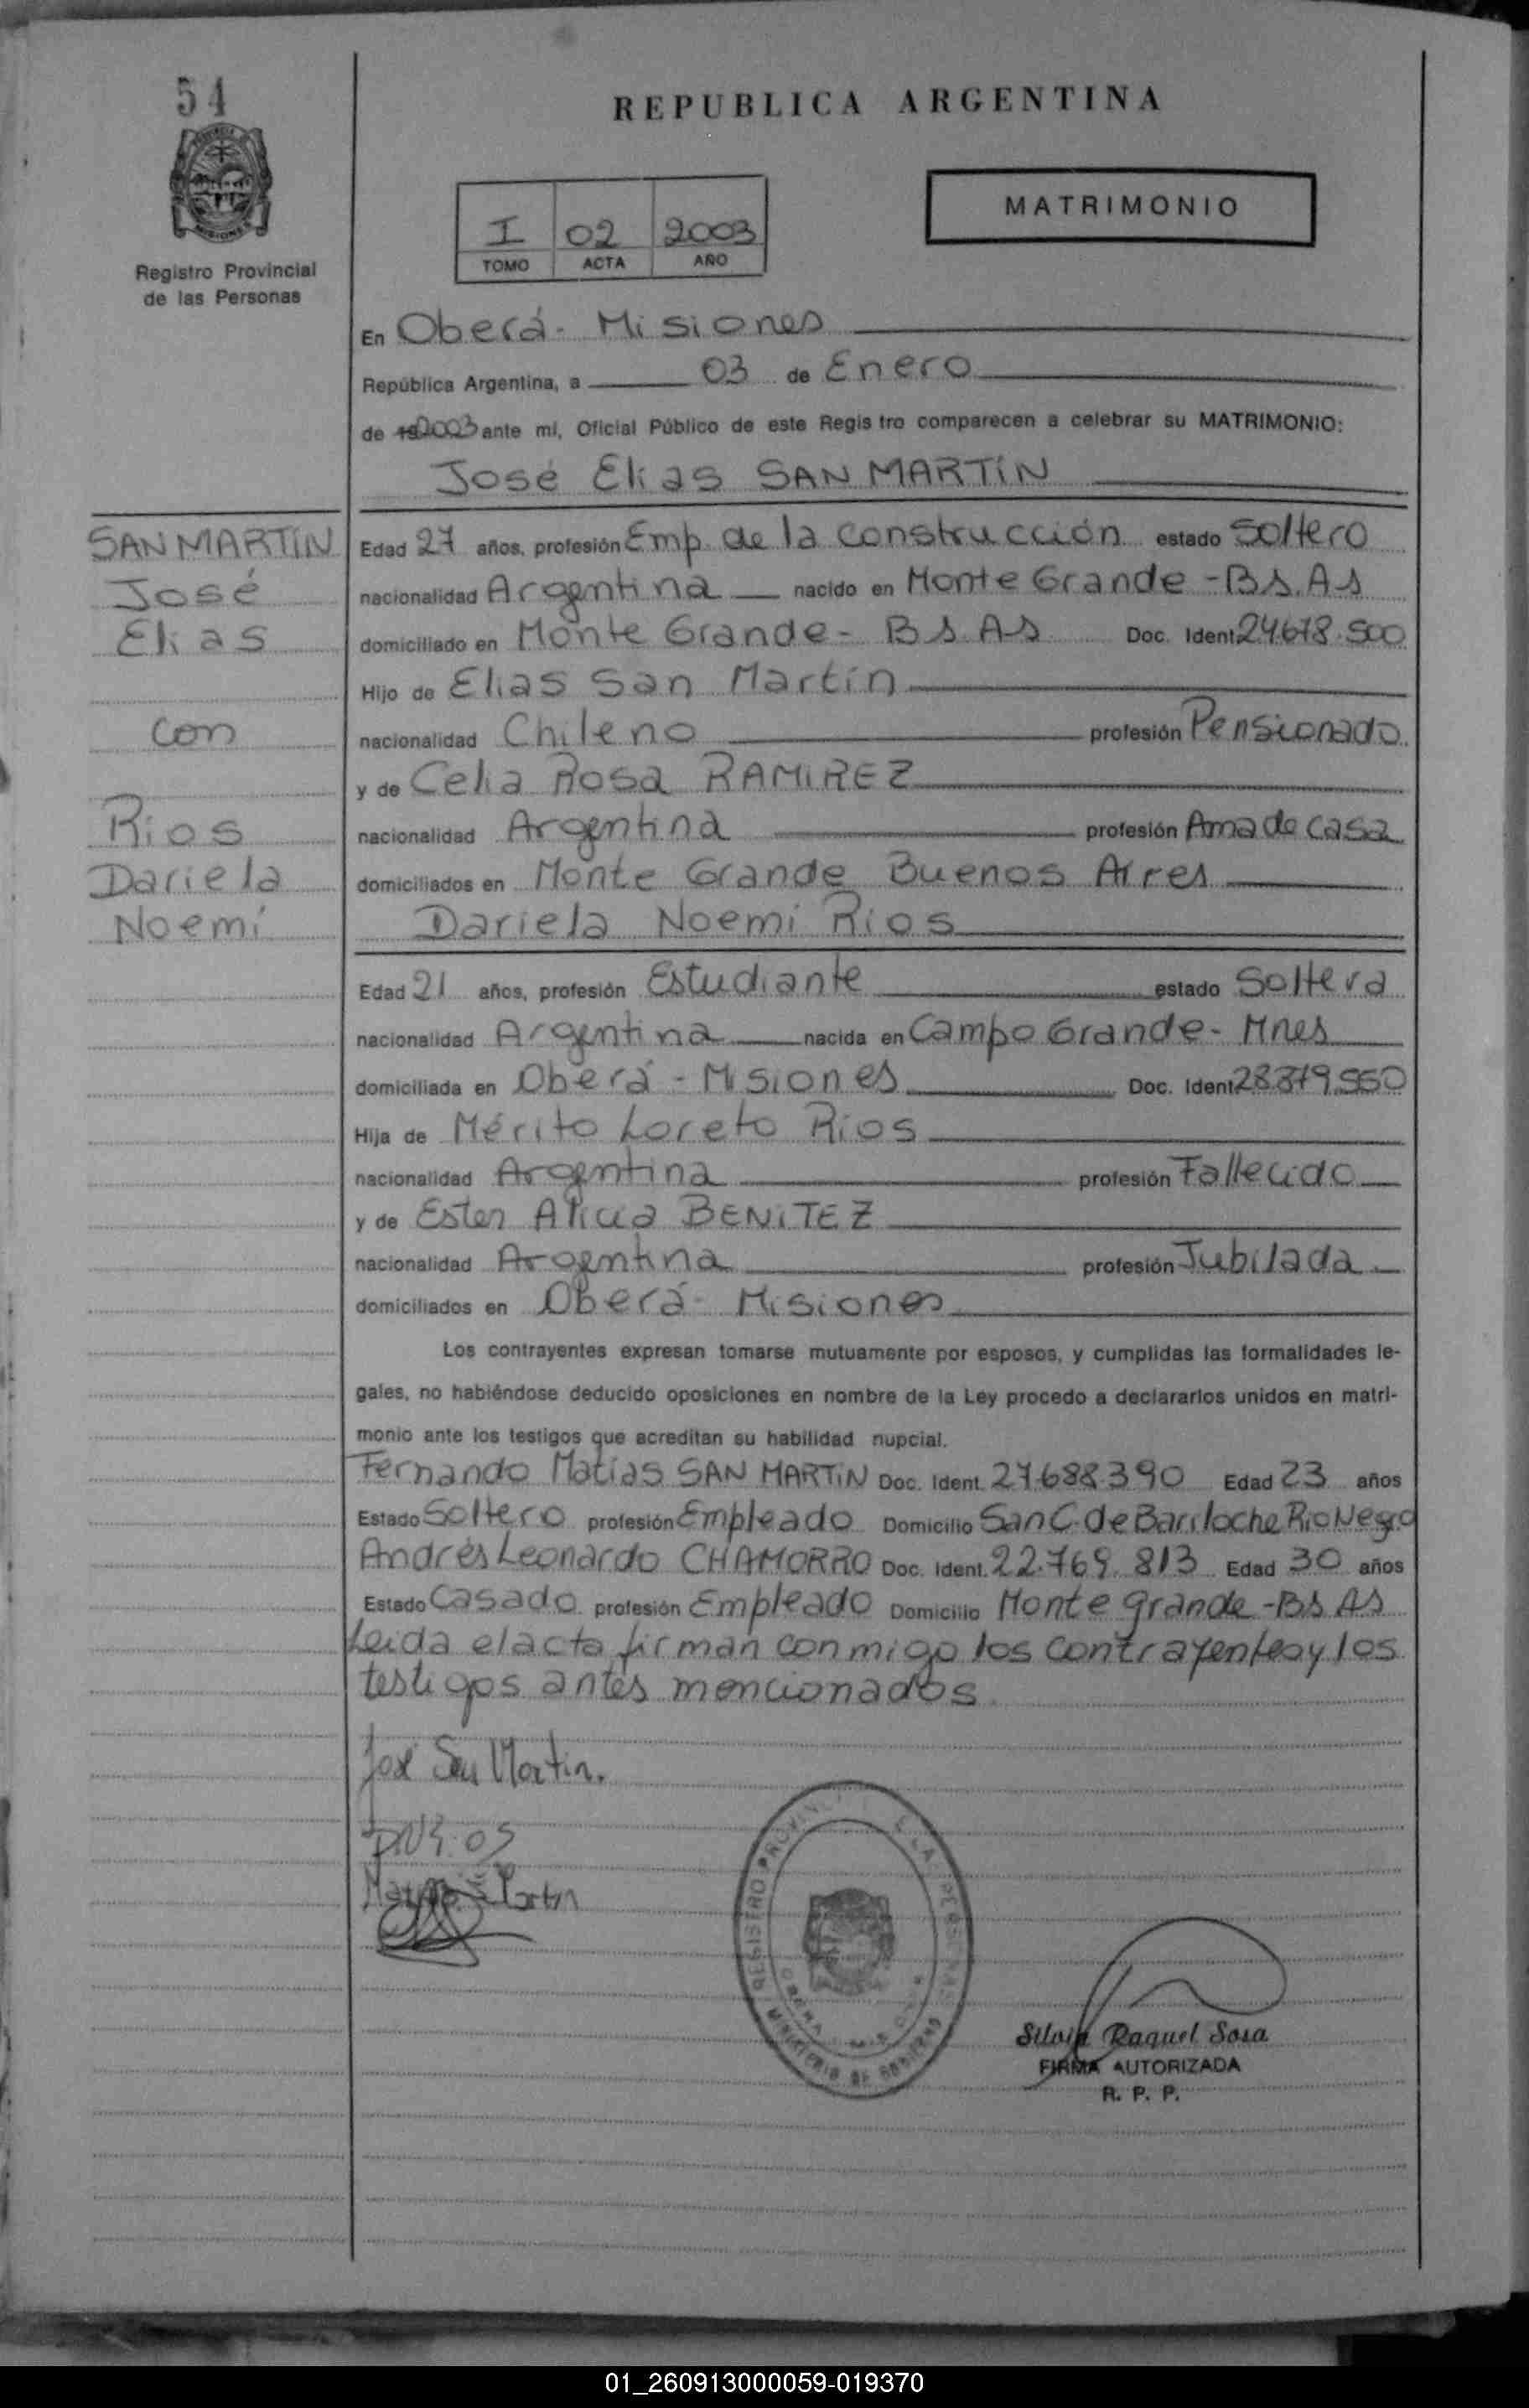 54
REPUBLICA ARGENTINA
MATRIMONIO
I 02 2003
TOMO ACTA AÑO
Registro Provincial
de las Personas
En Oberá - Misiones
República Argentina, a 03 de Enero
de 2003 ante mi, Oficial Público de este Regis tro comparecen a celebrar su MATRIMONIO:
José Elias SAN MARTÍN
SAN MARTÍN
José
Elias
con
Rios
Dariela
Noemí
Edad 27 años, profesión Emp. de la construcción estado Soltero
nacionalidad Argentina nacido en Monte Grande - BS. AS
domiciliado en Monte Grande - BS. AS Doc. Ident. 24.678.500
Hijo de Elias San Martín
nacionalidad Chileno profesión Pensionado
y de Celia Rosa RAMIREZ
nacionalidad Argentina profesión Ama de casa
domiciliados en Monte Grande Buenos Aires
Dariela Noemi Rios
Edad 21 años, profesión Estudiante estado Soltera
nacionalidad Argentina nacida en Campo Grande - Mnes
domiciliada en Oberá - Misiones Doc. Ident. 28.879.550
Hija de Mérito Loreto Rios
nacionalidad Argentina profesión Fallecido
y de Ester Alicia BENITEZ
nacionalidad Argentina profesión Jubilada
domiciliados en Oberá - Misiones
Los contrayentes expresan tomarse mutuamente por esposos, y cumplidas las formalidades le-
gales, no habiéndose deducido oposiciones en nombre de la Ley procedo a declararlos unidos en matri-
monio ante los testigos que acreditan su habilidad nupcial.
Fernando Matías SAN MARTIN Doc. Ident. 27.688.390 Edad 23 años
Estado Soltero profesión Empleado Domicilio San C. de Bariloche Rio Negro
Andrés Leonardo CHAMORRO Doc. Ident. 22.769.813 Edad 30 años
Estado Casado profesión Empleado Domicilio Monte grande - BS AS
Leida el acta firman conmigo los contrayentes y los
testigos antes mencionados
José San Martin.
REGISTRO PROVINCIAL DE LAS PERSONAS
MINISTERIO DE GOBIERNO
Silvia Raquel Sosa
FIRMA AUTORIZADA
R. P. P.
01_260913000059-019370